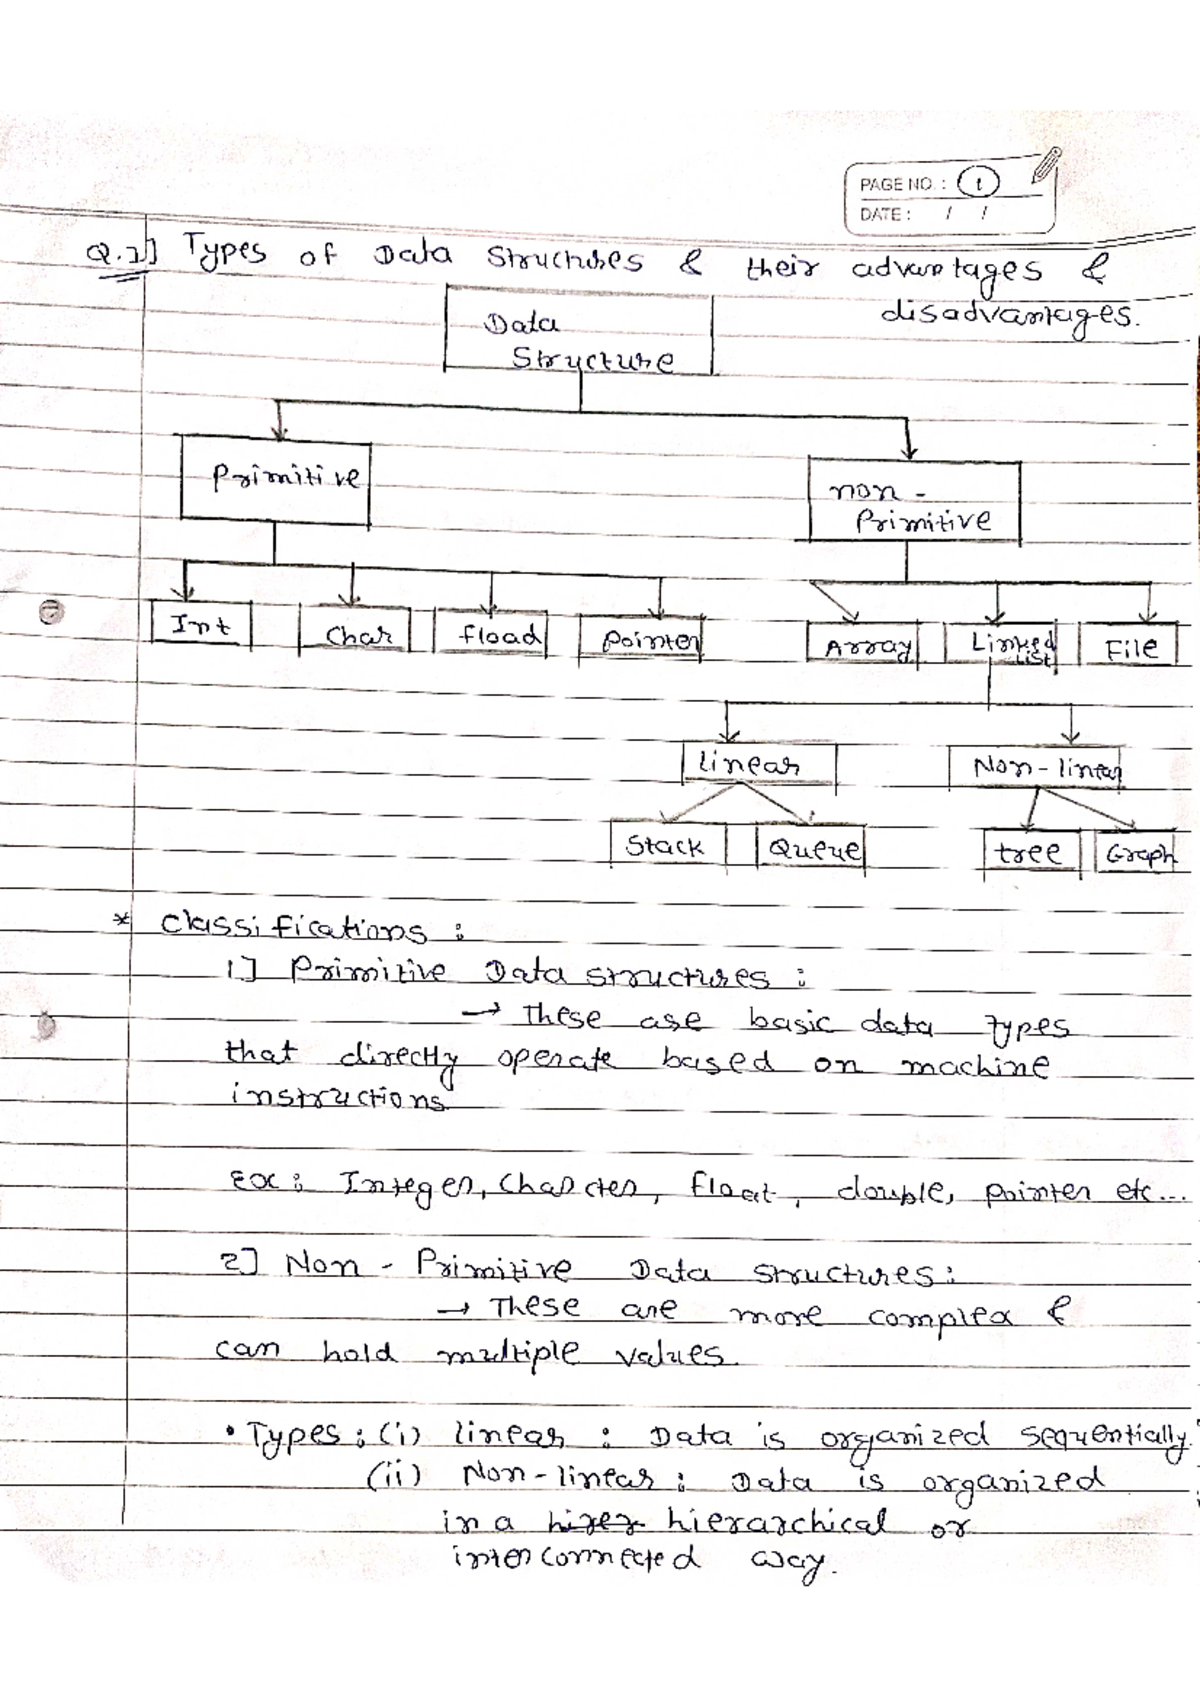 PAGE NO.: 1
DATE: / /
Q.1] Types of Data Structures & their advantages &
disadvantages.
Data
Structure
Primitive
non -
Primitive
Int
Char
fload
pointer
Array
Linked
List
File
linear
Non - linear
Stack
Queue
tree
Graph
* Classifications :
1] Primitive Data structures :
→ These are basic data types
that directly operate based on machine
instructions.
Ex : Integer, Charcter, float, double, pointer etc...
2] Non - Primitive Data structures :
→ These are more complex &
can hold multiple values.
• Types : (i) linear : Data is organized sequentially.
(ii) Non - linear : Data is organized
in a hierarchical or
interconnected way.